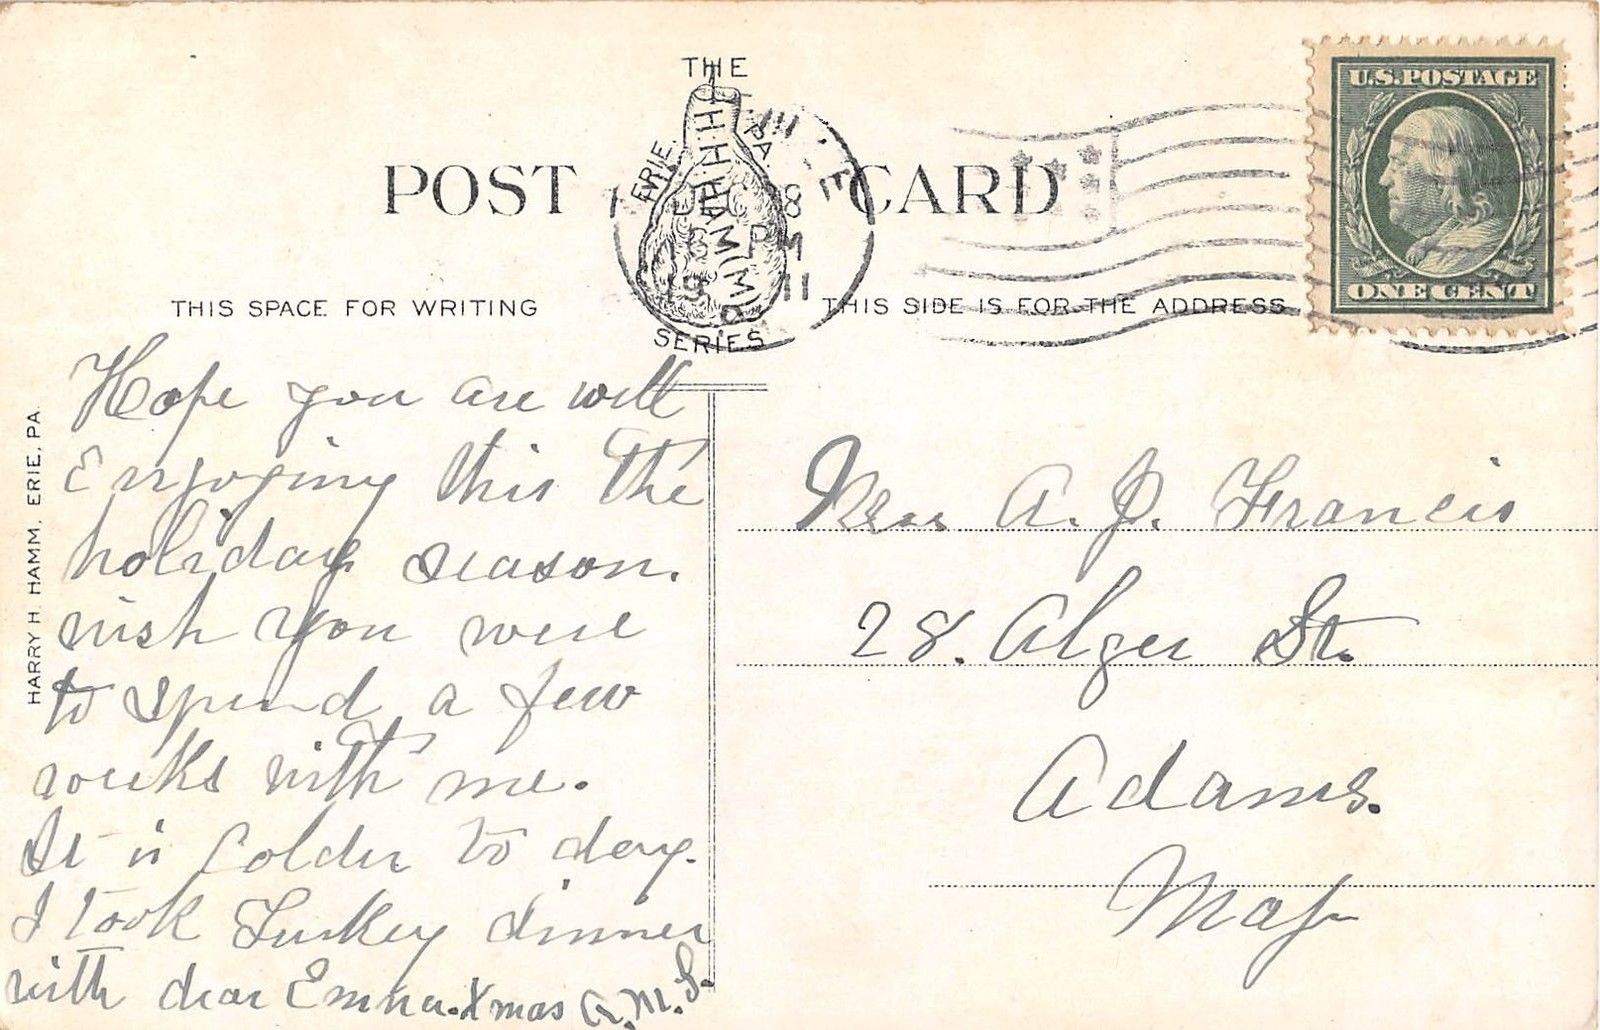 THE
HHHAMM
ERIE PA.
SERIES
POST CARD
DEC 28
PM
1911
U.S. POSTAGE
ONE CENT
THIS SPACE FOR WRITING
THIS SIDE IS FOR THE ADDRESS
HARRY H. HAMM, ERIE, PA.
Hope you are well
Enjoying this the
holiday season.
wish you were
to spend a few
weeks with me.
It is Colder to day.
I took Turkey dinner
with dear Emma. Xmas
A. J. Francis
28. Alger St.
Adams.
Mass